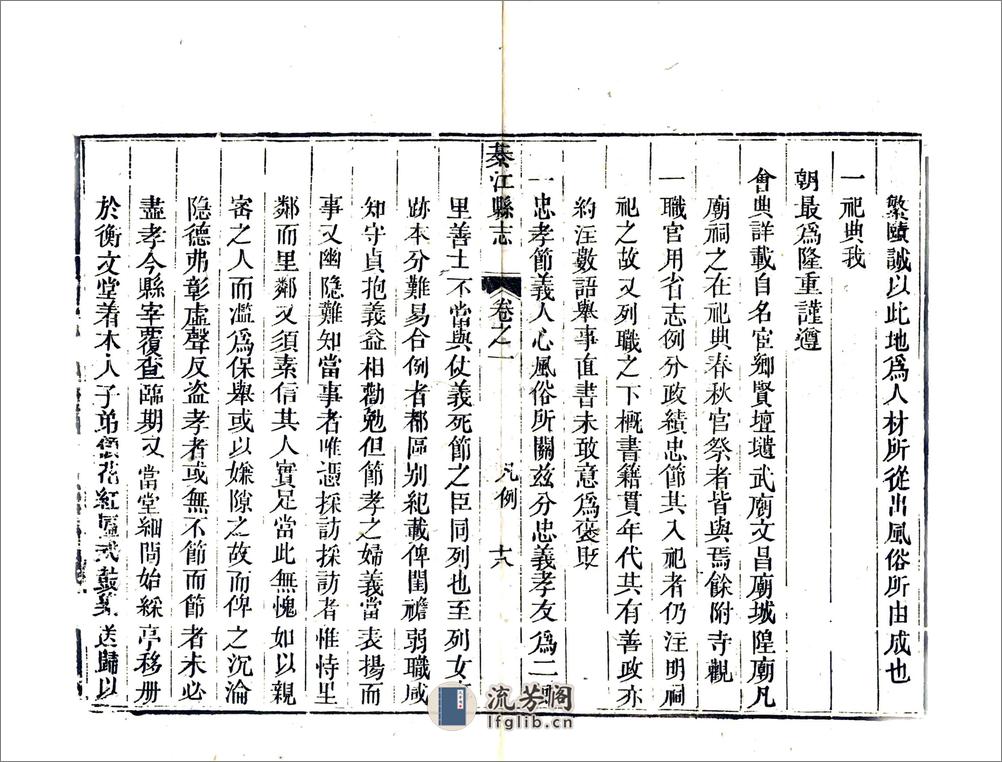 繁賾誠以此地爲人材所從出風俗所由成也
一祀典我
朝最爲隆重謹遵
會典詳載自名宦鄉賢壇壝武廟文昌廟城隍廟凡
廟祠之在祀典春秋官祭者皆與焉餘附寺觀
一職官用省志例分政績忠節其入祀者仍注明祠
祀之故又列職之下概書籍貫年代其有善政亦
約注數語舉事直書未敢意爲褒貶
一忠孝節義人心風俗所關茲分忠義孝友爲二
綦江縣志 卷之一 凡例 十六
里善士不當與仗義死節之臣同列也至列女
跡本分難易合例者都區别紀載俾閨襜弱職咸
知守貞抱義益相勸勉但節孝之婦義當表揚而
事又幽隐難知當事者唯憑採訪採訪者惟恃里
鄰而里鄰又須素信其人實足當此無愧如以親
宻之人而濫爲保舉或以嫌隙之故而俾之沉淪
隐德弗彰虛聲反盗孝者或無不節而節者未必
盡孝今縣宰覆查臨期又當堂細問始綵亭移册
於衡文堂着本人子弟 花紅 送歸以
流芳阁
lfglib.cn